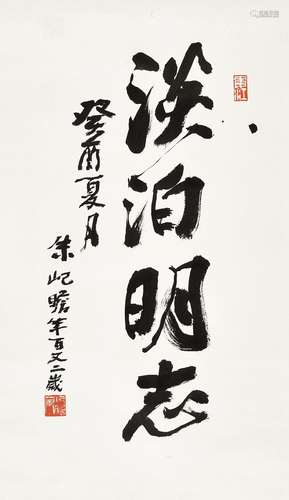 淡泊明志
癸酉夏月
朱屺瞻年百又二歲